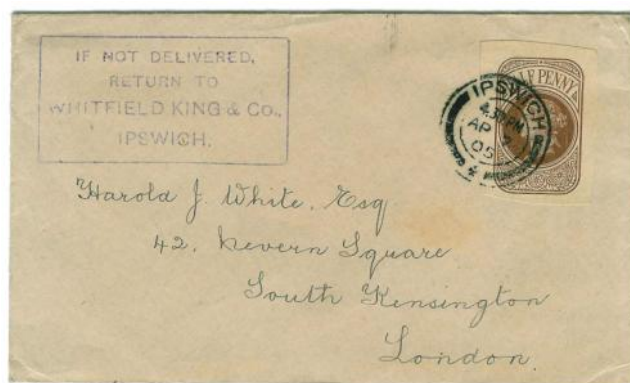 IF NOT DELIVERED,
RETURN TO
WHITFIELD KING & Co.,
IPSWICH.
LF PENNY
IPSWICH
4.30 PM
AP
05
Harold J. White. Esq
42. Nevern Square
South Kensington
London.